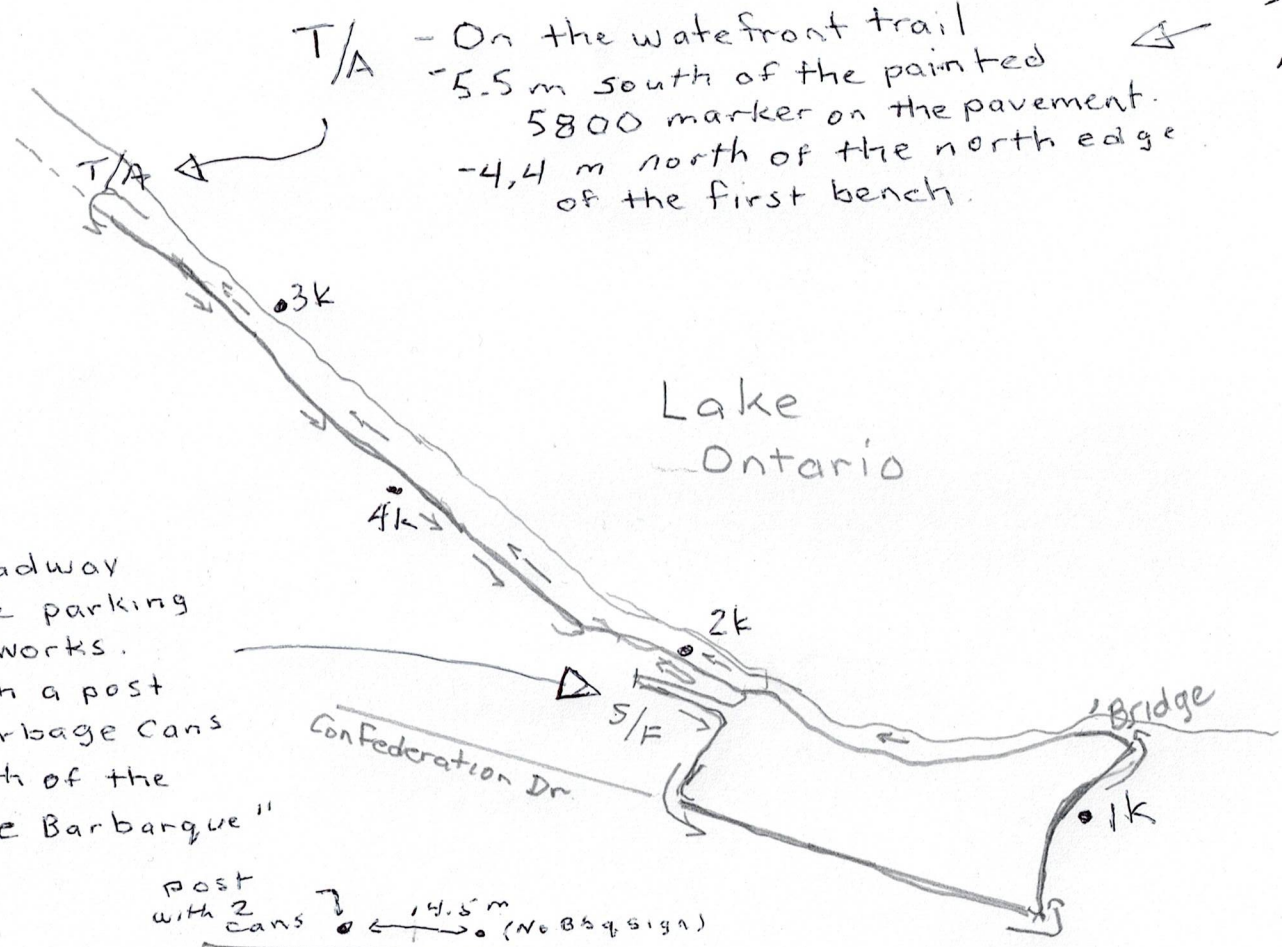 T/A - On the watefront trail
-5.5 m south of the painted
5800 marker on the pavement.
-4,4 m north of the north edge
of the first bench.
T/A
3K
Lake
Ontario
4k
2k
Bridge
S/F
Confederation Dr.
1K
adway
parking
works.
a post
rbage Cans
th of the
e Barbarque"
post
with 2
cans
14.5 m
(No BBq sign)